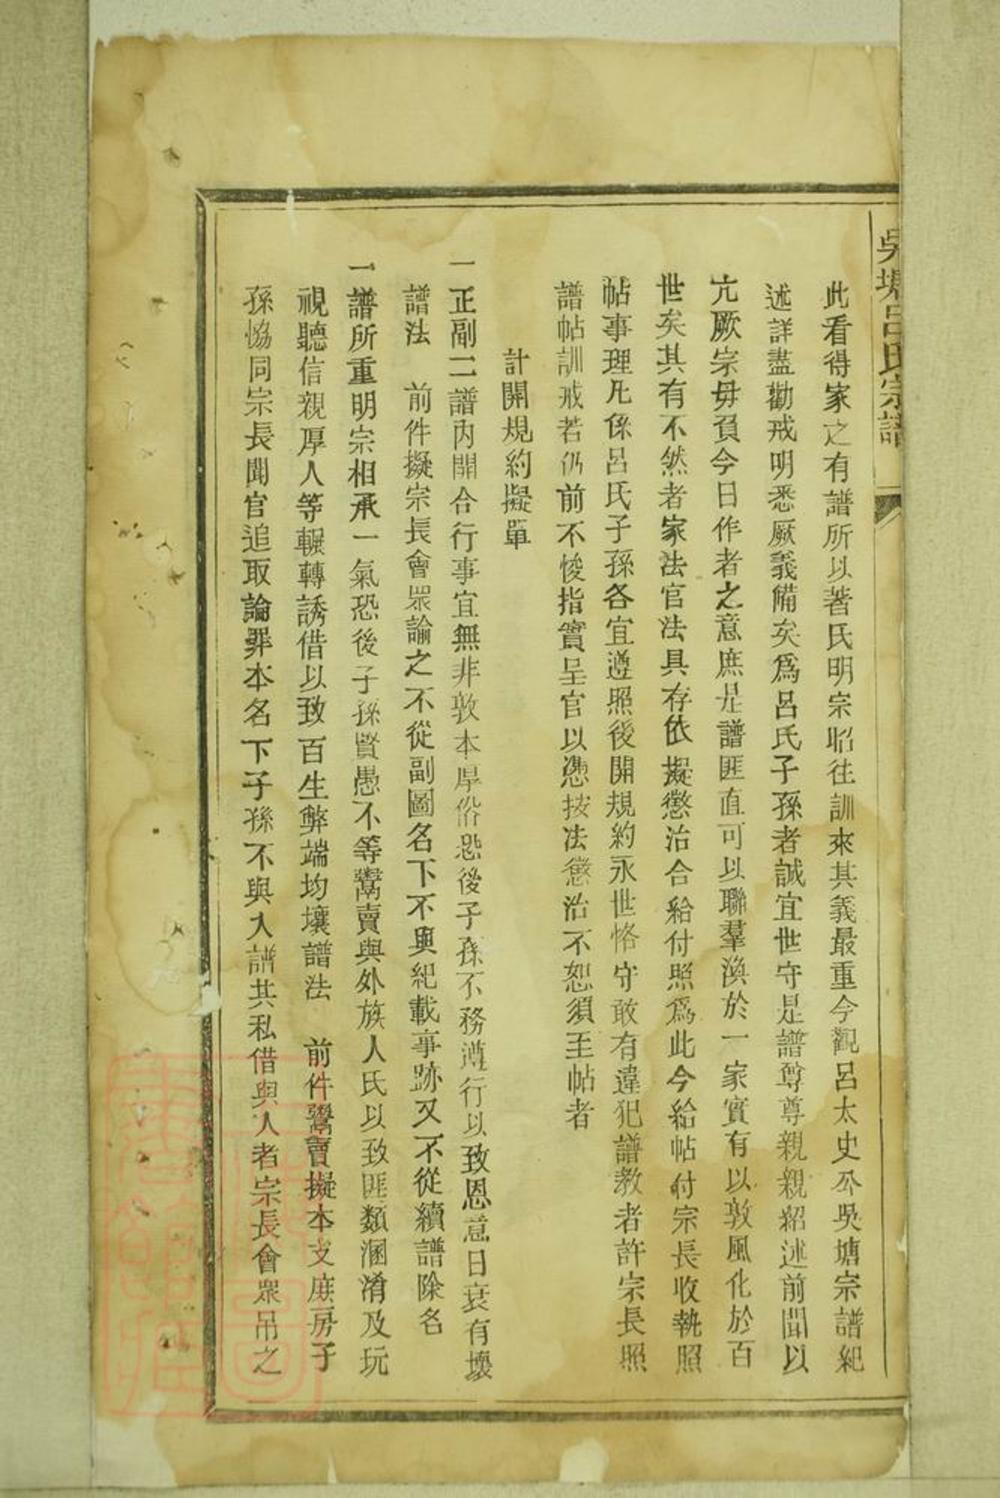 吳塘呂氏宗譜
此看得家之有譜所以著氏明宗昭往訓來其義最重今觀呂太史公吳塘宗譜紀
述詳盡勸戒明悉厥義備矣爲呂氏子孫者誠宜世守是譜尊尊親親紹述前聞以
亢厥宗毋負今日作者之意庶是譜匪直可以聯羣渙於一家實有以敦風化於百
世矣其有不然者家法官法具存依擬懲治合給付照爲此今給帖付宗長收執照
帖事理凡係呂氏子孫各宜遵照後開規約永世恪守敢有違犯譜教者許宗長照
譜帖訓戒若仍前不悛指實呈官以憑按法懲治不恕須至帖者
計開規約擬單
一正副二譜內開合行事宜無非敦本厚俗恐後子孫不務遵行以致恩意日衰有壞
譜法 前件擬宗長會眾論之不從副圖名下不與紀載事跡又不從續譜除名
一譜所重明宗相承一氣恐後子孫賢愚不等鬻賣與外族人氏以致匪類溷淆及玩
視聽信親厚人等輾轉誘借以致百生弊端均壞譜法 前件鬻賣擬本支庶房子
孫恊同宗長聞官追取論罪本名下子孫不與入譜其私借與人者宗長會眾吊之